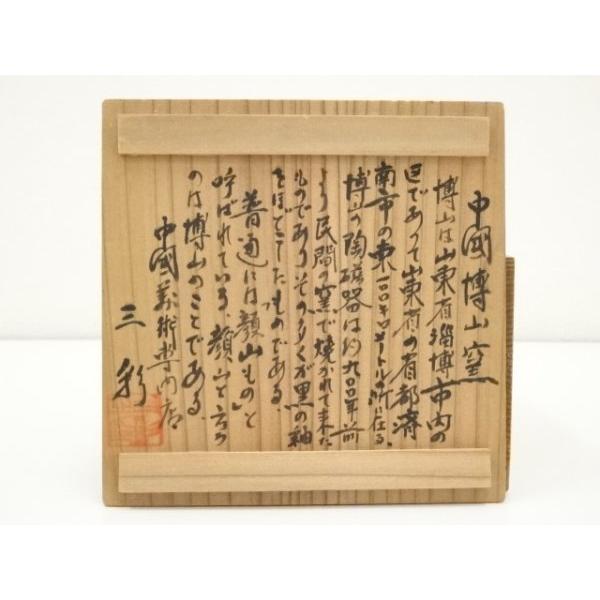 中國博山窯
博山は山東省淄博市内の
区であって山東省の省都済
南市の東一〇〇キロメートルの所に在る。
博山の陶磁器は約九〇〇年前
より民間の窯で焼かれて来た
ものでありその多くが黒の釉
をほどこしたものである。
普通には「顔山もの」と
呼ばれている。顔山と言う
のは博山のことである。
中國美術専門店
三彩